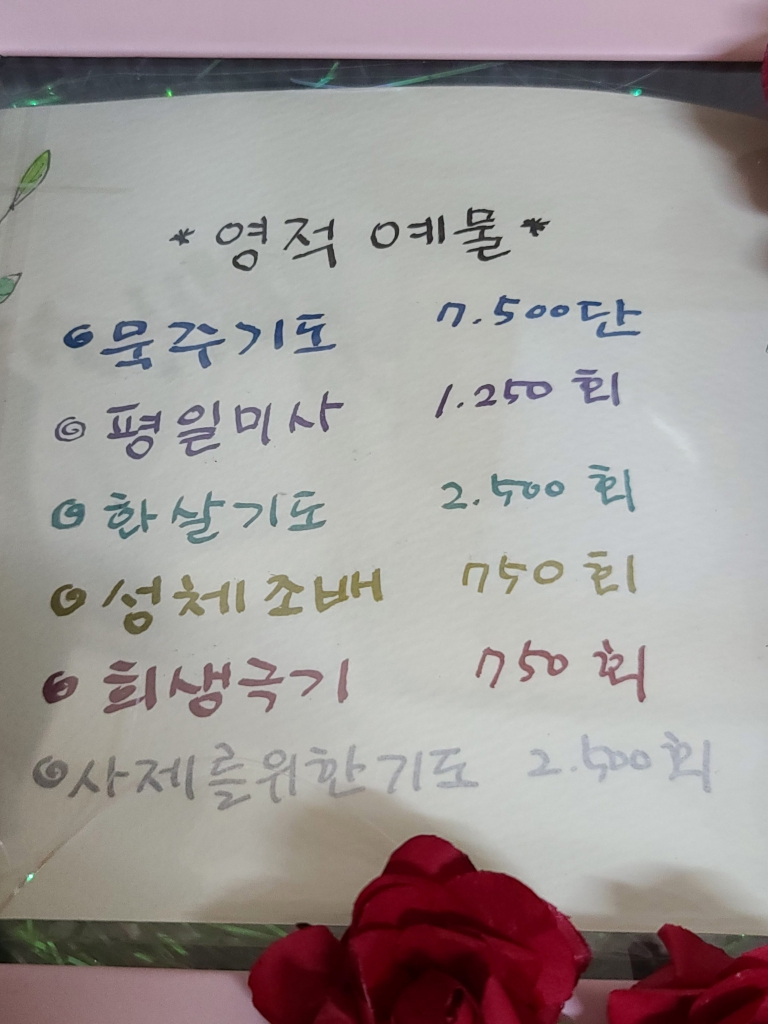 *영적 예물*
묵주기도 7.500단
평일미사 1.250 회
화살기도 2.500 회
성체조배 750 회
희생극기 750 회
사제를위한기도 2.500회